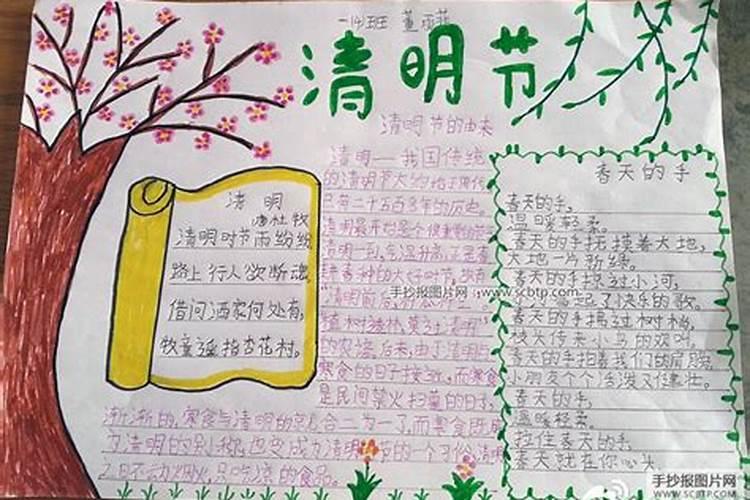 清明节
清明节的由来
清明 一 我国传统
的清明节大约始于周代
已有二千五百多年的历史。
清明一到,气温升高,正是春
"清明前后,种瓜种豆"
的农谚。后来,由于清明与
寒食的日子接近,而寒食
是民间禁火扫墓的日子,
渐渐的,寒食与清明的就合二为一了,而寒食既
为清明的别称,也变成为清明节的一个习俗,清明
之日不动烟火,只吃凉的食品。
清 明
唐杜牧
清明时节雨纷纷
路上行人欲断魂
借问酒家何处有,
牧童遥指杏花村.
春天的手
春天的手,
温暖轻柔。
春天的手抚摸着大地,
大地一片新绿。
春天的手掠过小河,
了快乐的歌。
春天的手拂过树梢,
枝头传来小鸟的欢叫。
春天的手拍着我们的肩膀,
小朋友个个活泼又健壮。
春天的手,
温暖轻柔。
拉住春天的手,
春天就在你心头。
手抄报图片网:www.scbtp.com
手抄报图片网
WWW.SCBTP.COM